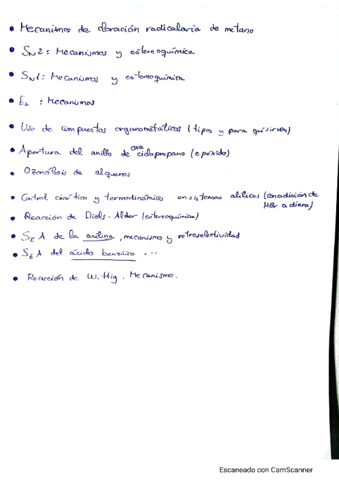 • Mecanismos de cloración radicalaria de metano
• SN2: Mecanismos y estereoquímica
• SN1: Mecanismos y estereoquímica
• E1 : Mecanismos
• Uso de compuestos organometálicos (tipos y para qué sirven)
• Apertura del anillo de oxaciclopropano (epóxido)
• Ozonólisis de alquenos
• Control cinético y termodinámico en sistemas alílicos (con adición de
HBr a dieno)
• Reacción de Diels-Alder (estereoquímica)
• SEA de la anilina, mecanismo y retroselectividad
• SEA del ácido benzoico ...
• Reacción de Wittig. Mecanismo.
Escaneado con CamScanner